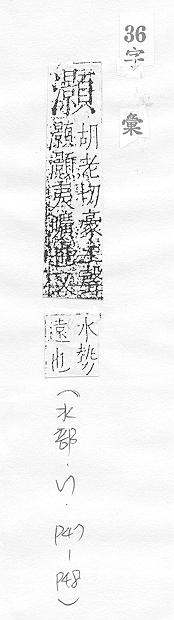 36字彙
灝
胡老切豪上聲
灝灝夷曠也又
水勢
遠也
(水部．以．P47-P48)